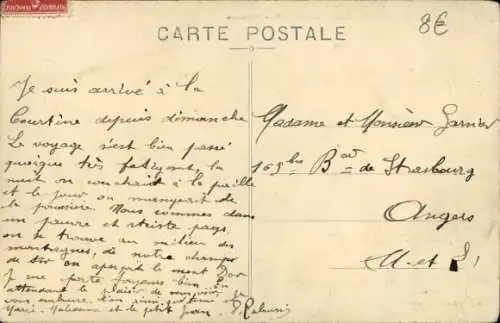 CARTE POSTALE
8€
Je suis arrivé à la
Courtine depuis dimanche
Le voyage s'est bien passé
quoique très fatigant, la
nuit on couchait à la paille
et le jour on mangeait de
la poussière. Nous sommes dans
un pauvre et triste pays,
on se trouve au milieu des
montagnes, de notre champ
de tir on aperçoit le mont Dor
Je me porte toujours bien. En
attendant le plaisir de vous voir, je
vous embrasse bien
Marie-Madame et le petit Jean.
Madame et Monsieur Garnier
165 bis Bard de Strasbourg
Angers
M- et L.